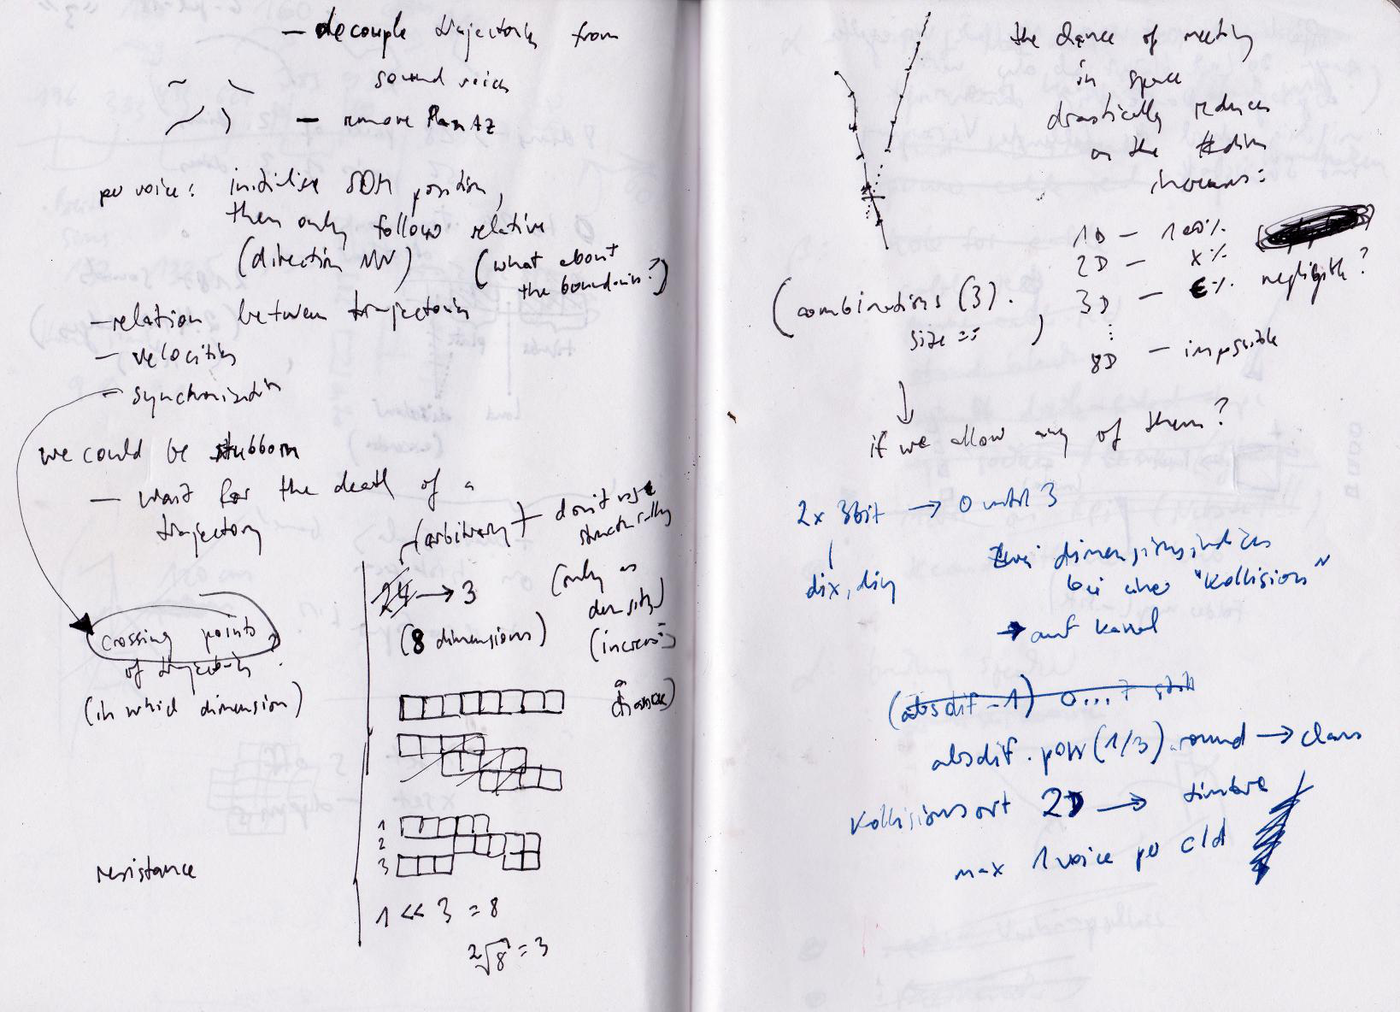 — decouple trajectories from
sound voices
— remove PanAZ
per voice: initialise SOM position,
then only follow relative
(direction NN) (what about
the boundaries?)
— relation between trajectories
— velocities
— synchronization
we could be stubborn
— wait for the death of a
trajectory
(arbitrary) don't use
structurally
24 → 3 (only as
density)
(8 dimensions) (increasing
crossing points
of trajectories
(in which dimension)
1
2
3
resistance
1 << 3 = 8
2√8 = 3
the chance of meeting
in space
drastically reduces
as the #dim
increases:
1D — 100%
2D — x%
3D — €% negligible?
8D — impossible
(combinations (3).
size == )
if we allow any of them?
2x 3bit → 0 until 3
dix, diy
zwei dimensionsindices
bei einer "Kollision"
→ auf Kanal
(absdif - 1) 0...7
absdif . pow (1/3) . round → class
Kollisionsort 2D → timbre
max 1 voice per cld